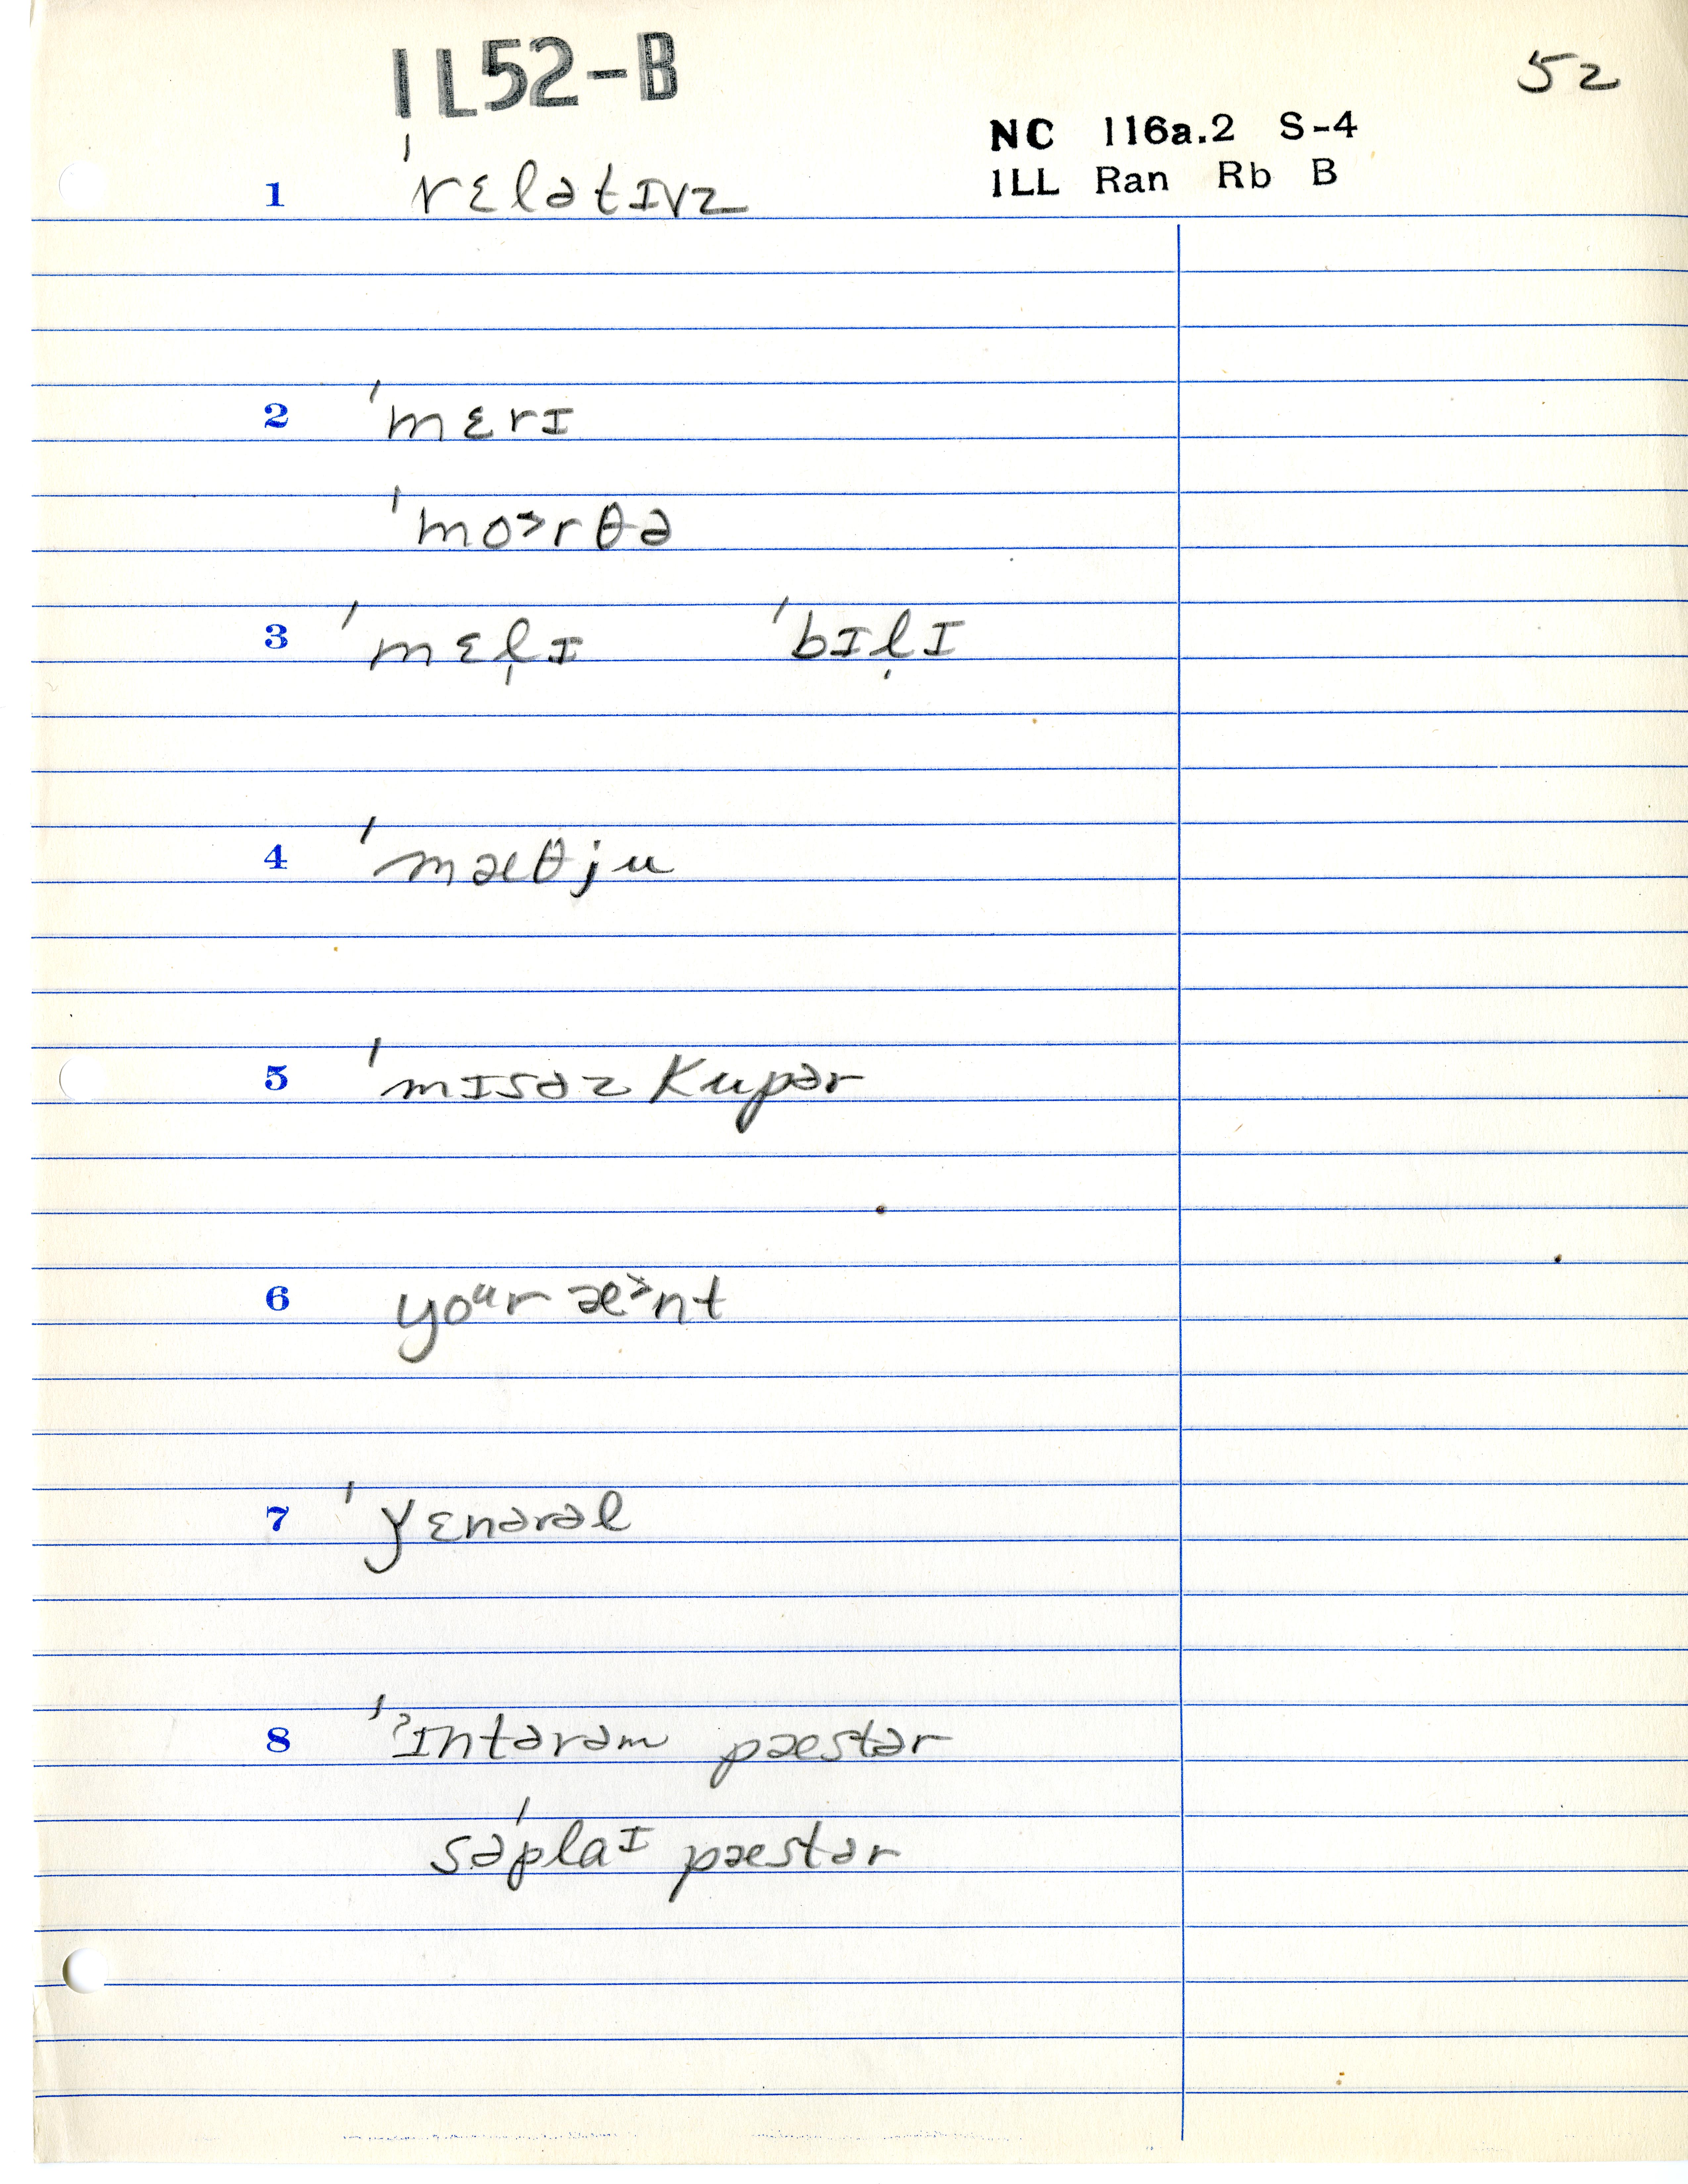 IL52-B
52
NC 116a.2 S-4
ILL Ran Rb B
1 ˈrɛlətɪvz
2 ˈmɛrɪ
ˈmo˃rθə
3 ˈmɛḷɪ ˈbɪḷɪ
4 ˈmæθju
5 ˈmɪsəz Kupər
6 yoᵘr æ˃nt
7 ˈɣɛnərəl
8 ˈˀɪntərəm pæstər
səˈplaᶦ pæstər